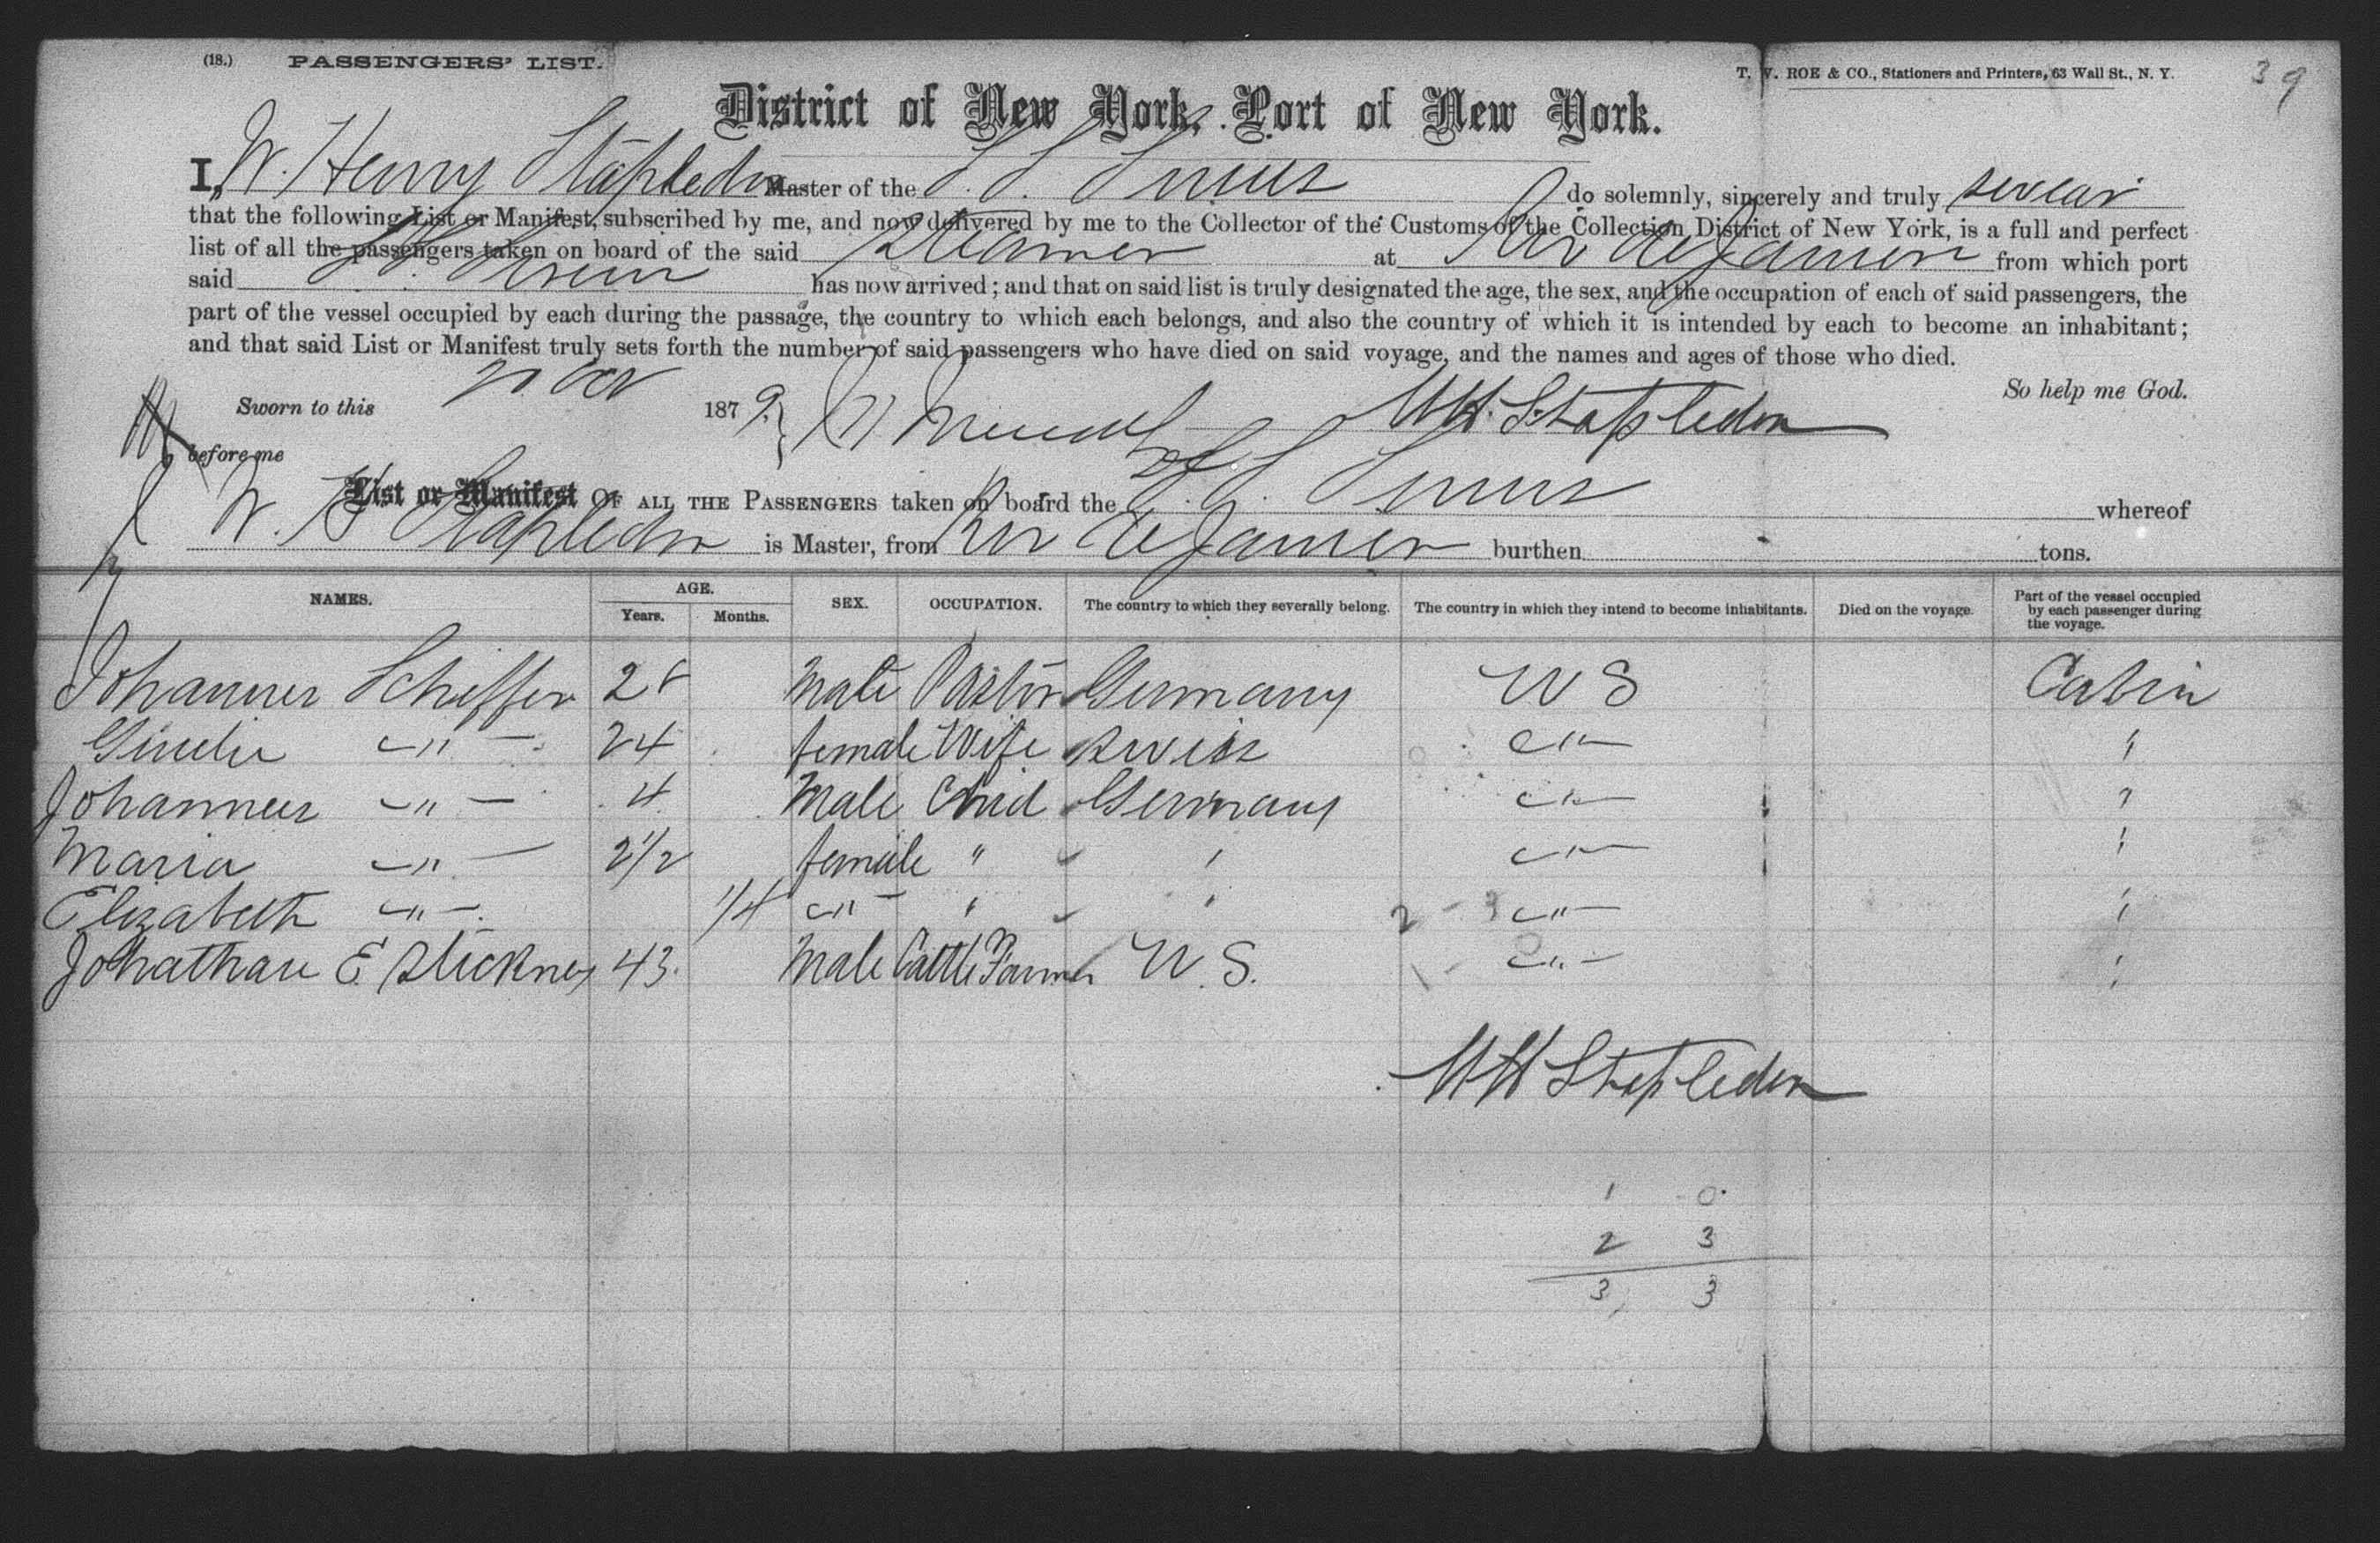 (18.) PASSENGERS' LIST. T. W. ROE & CO., Stationers and Printers, 63 Wall St., N. Y. 39
District of New York, Port of New York.
I, W. Henry Stapledon Master of the S. S. do solemnly, sincerely and truly swear
that the following List or Manifest, subscribed by me, and now delivered by me to the Collector of the Customs of the Collection District of New York, is a full and perfect
list of all the passengers taken on board of the said Steamer at Rio de Janeiro from which port
said has now arrived; and that on said list is truly designated the age, the sex, and the occupation of each of said passengers, the
part of the vessel occupied by each during the passage, the country to which each belongs, and also the country of which it is intended by each to become an inhabitant;
and that said List or Manifest truly sets forth the number of said passengers who have died on said voyage, and the names and ages of those who died.
So help me God.
Sworn to this 1879. WH. Stapledon
before me
List or Manifest OF ALL THE PASSENGERS taken on board the S. S. whereof
W. H Stapledon is Master, from Rio de Janeiro burthen tons.
NAMES. AGE. Years. Months. SEX. OCCUPATION. The country to which they severally belong. The country in which they intend to become inhabitants. Died on the voyage. Part of the vessel occupied by each passenger during the voyage.
Johannes Schiffer 28 Male Pastor Germany U S Cabin
—"— 24 female Wife Swiss —"— "
Johannes —"— 4 Male Child Germany —"— "
Maria —"— 2 1/2 female " " —"— "
Elizabeth —"— 1/4 —"— " " 2 - 3 —"— "
Johathan E Stickney 43. Male Cattle Farmer U. S. 1 - 0 —"— "
WH Stapledon
1 0
2 3
3 3